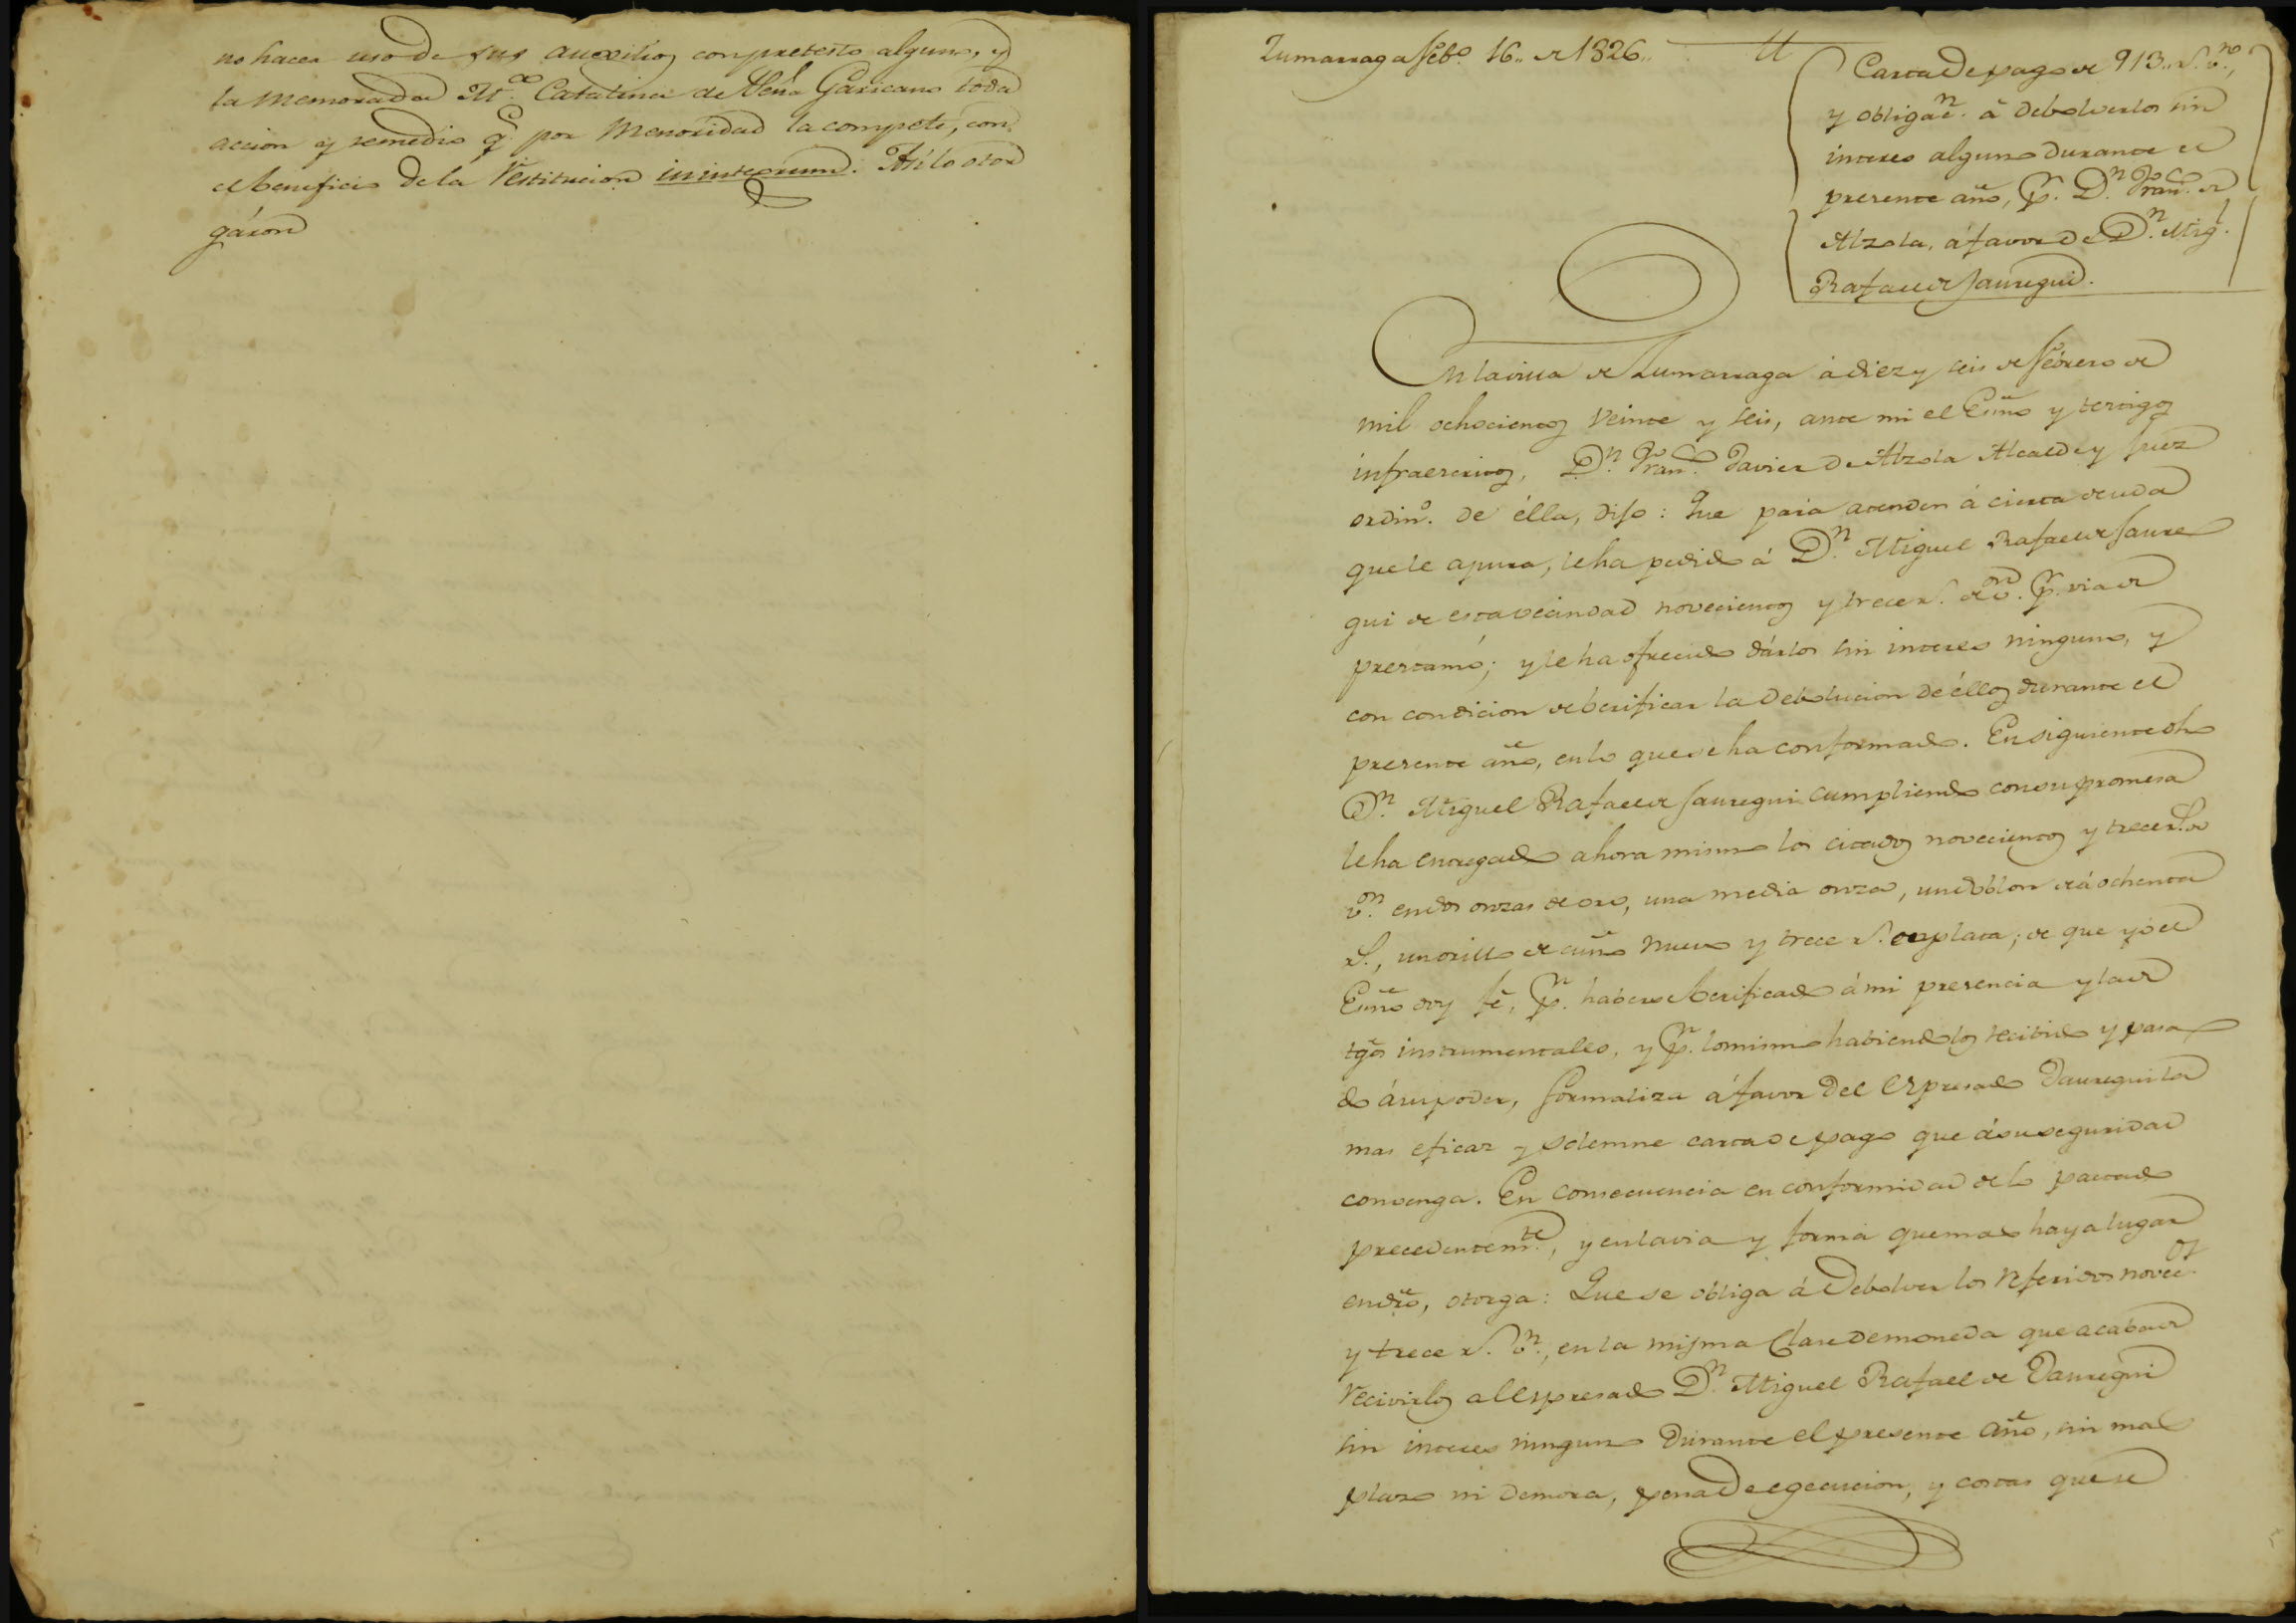 no hacer uso de sus auxilios con pretesto alguno, y
la memorada Mª Catalina de Garicano toda
accion y remedio q.e por menoridad la compete, con
el beneficio de la restitucion in integrum. Asi lo otor
gáron
Zumarraga Feb.o 16.. de 1826..
Carta de pago de 913.. r.s v.on,
y obligac.n á debolverlos sin
interes alguno durante el
presente año, p.r D.n Fran.co de
Alzola, á favor de D.n Mig.l
Rafael de Jauregui.
En la villa de Zumarraga á diez y seis de Febrero de
mil ochocientos veinte y seis, ante mi el Esno y testigos
infraescritos, D.n Fran.co Javier de Alzola Alcalde y Juez
ordin.o de élla, dijo: Que para atender á cierta deuda
que le apura, le ha pedido á D.n Miguel Rafael de Jaure
gui de esta vecindad novecientos y trece r.s de v.on p.r via de
prestamo; y le ha ofrecido dárlos sin interes ninguno, y
con condicion de berificar la debolucion de éllos durante el
presente año, en lo que se ha conformado. En siguiente dho
D.n Miguel Rafael de Jauregui cumpliendo con su promesa
le ha entregado ahora mismo los citados novecientos y trece r.s de
v.on en dos onzas de oro, una media onza, un doblon de á ochenta
r.s, un orillo de cuño nuevo y trece r.s en plata; de que yo el
Esno doy fé, p.r haberse berificado á mi presencia y la de
tgos instrumentales, y p.r lo mismo habiendolos recibido y pasa
do á su poder, formaliza á favor del espresado Jauregui la
mas eficaz y solemne carta de pago que á su seguridad
convenga. En consecuencia en conformidad de lo pactado
precedentem.te, y en la via y forma que mas haya lugar
en dro, otorga: Que se obliga á debolver los referidos novec.os
y trece r.s v.n, en la misma clase de moneda que acaba de
recivirlos al espresado D.n Miguel Rafael de Jauregui
sin interes ninguno durante el presente año, sin mas
plazo ni demora, pena de egecucion, y costas que se